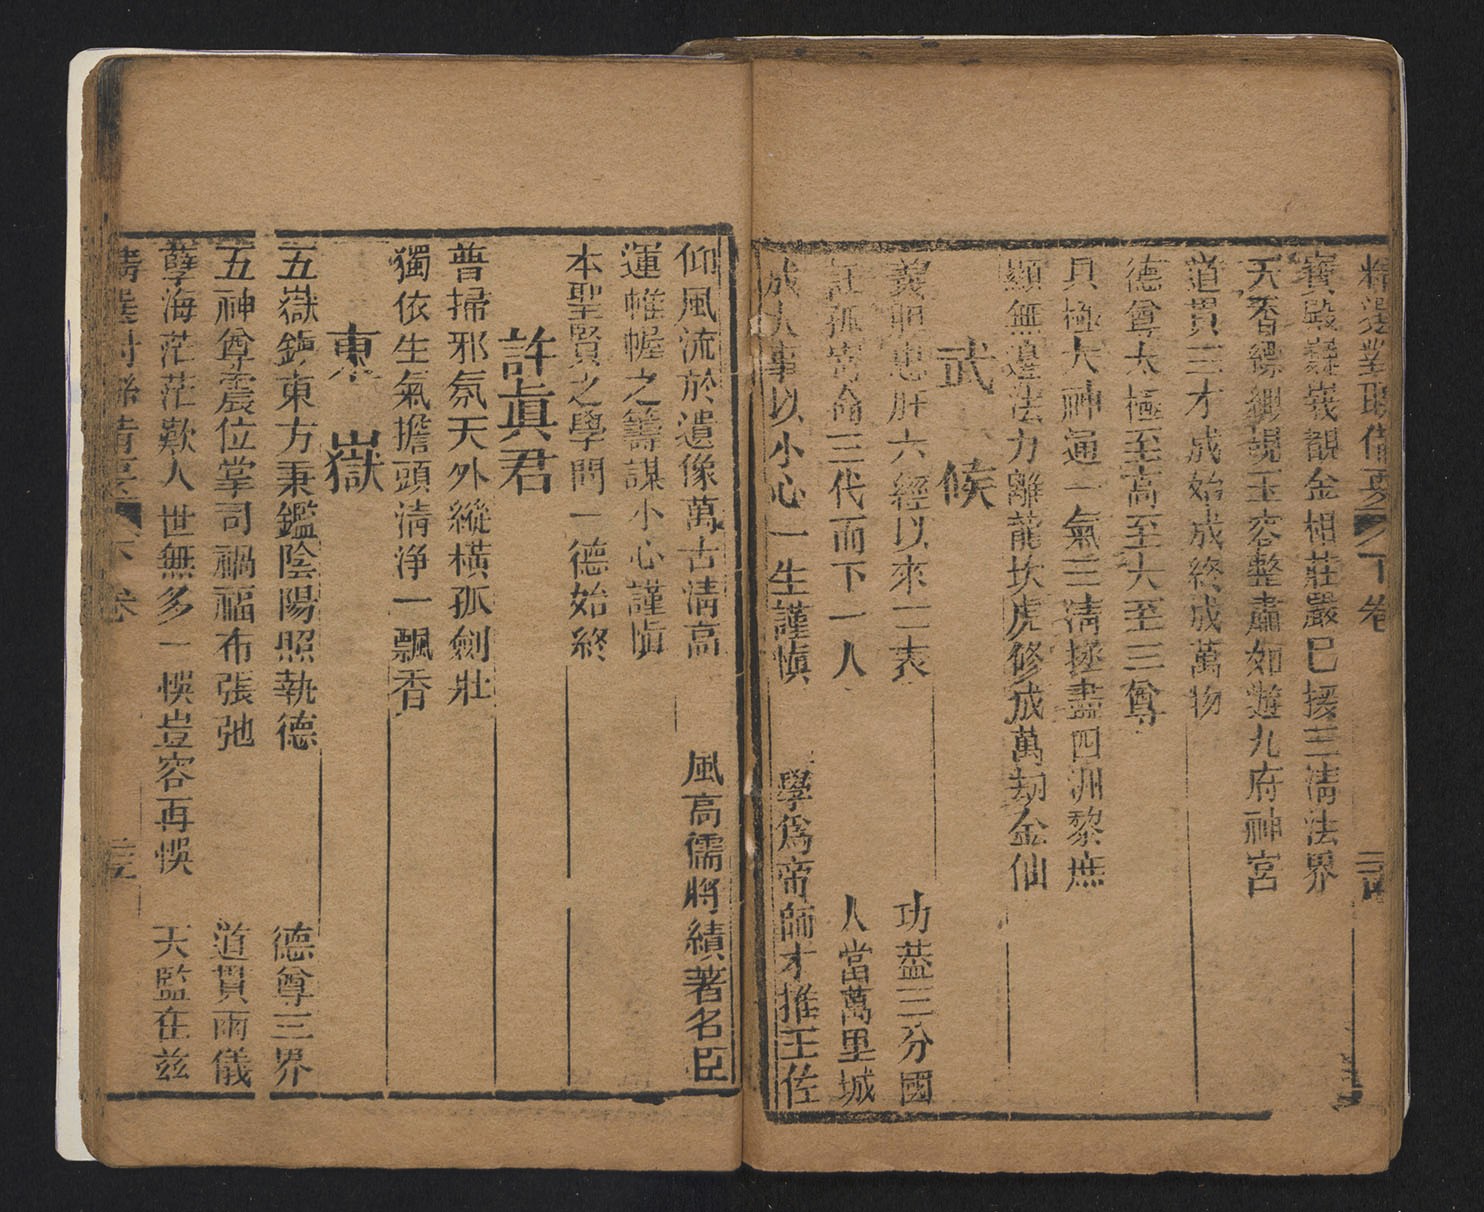 精選對聯備要 下卷
寶殿嵬峩覩金相莊嚴已援三清法界
天香縹緲覲玉容整肅如遊九府神宮
道貫三才成始成終成萬物
德尊太極至高至大至三尊
具極大神通一氣三清拯盡四洲黎庶
顯無邉法力離龍坎虎修成萬劫金仙
武 候
義胆忠肝六經以來二表 功葢三分國
託孤寄命三代而下一人 人當萬里城
成大事以小心一生謹愼 學爲帝師才推王佐
仰風流於遺像萬古清高 風高儒將績著名臣
運帷幄之籌謀小心謹愼
本聖賢之學問一德始終
許眞君
普掃邪氛天外縱橫孤劍壯
獨依生氣擔頭清浄一飄香
東 嶽
五嶽鎮東方秉鑑陰陽照執德 德尊三界
五神尊震位掌司禍福布張弛 道貫兩儀
孽海茫茫歎人世無多一悞豈容再悞 天監在兹
精選對聯備要 下卷